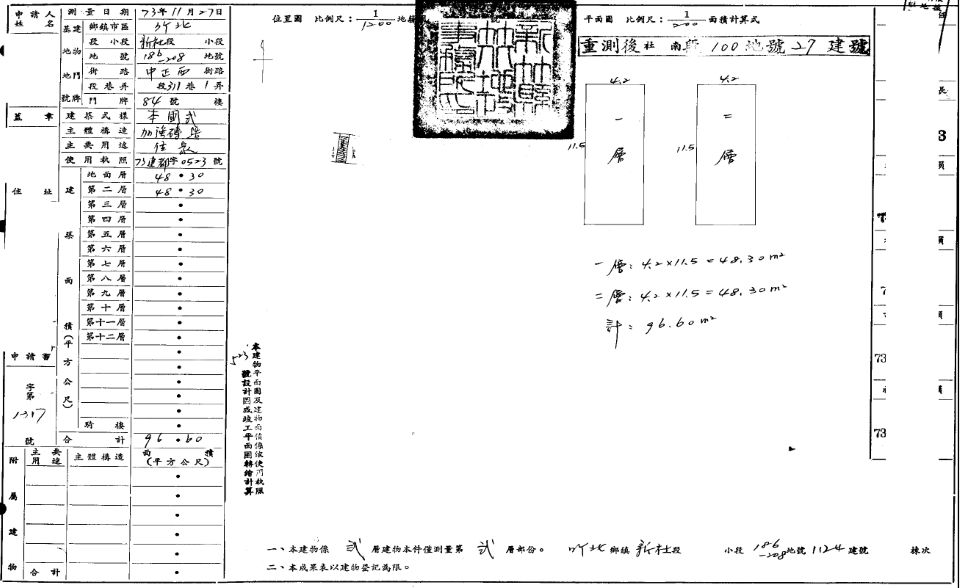 申請人姓名
測量日期 73年11月27日
基地 建物門牌號
鄉鎮市區 竹北
段 小段 新社段 小段
地號 186-208 地號
街路 中正西 街路
段巷弄 段311巷1弄
門牌 84號 樓
蓋章
建築式樣 本國式
主體構造 加強磚造
主要用途 住家
使用執照 73建都字0523號
住址
建築面積(平方公尺)
地面層 48.30
第二層 48.30
第三層 .
第四層 .
第五層 .
第六層 .
第七層 .
第八層 .
第九層 .
第十層 .
第十一層 .
第十二層 .
騎樓 .
合計 96.60
申請書
字第
1317
號
附屬建物
主要用途 主體構造 面積(平方公尺)
合計
位置圖 比例尺:1/1200
平面圖 比例尺:1/200 面積計算式
重測後社南段100地號27建號
4.2
4.2
11.5 一層
11.5 二層
一層:4.2×11.5=48.30m²
二層:4.2×11.5=48.30m²
計:96.60m²
523
本建物平面圖及建物面積係依使用執照
號設計圖或竣工平面圖轉繪計算
一、本建物係 貳 層建物本件僅測量第 貳 層部份。
竹北 鄉鎮 新社段 小段 186-208 地號 1124 建號 棟次
二、本成果表以建物登記為限。
長
3
73
73